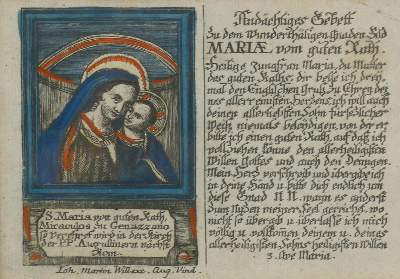 S. Maria von guten Rath,
Miraculos zu Genazzano
so verehret wird in der Kirch
der P.P. Augustinern nächst
Rom.
Joh. Martin Will exc. Aug. Vind.
Andächtiges Gebett
Zu dem Wunderthätigen Gnaden Bild
MARIÆ, vom guten Rath.
Heilige Jungfrau Maria, du Mutter
des guten Raths, dir bette ich drey
mal den Englischen Gruß zu Ehren dei-
nes allerreinsten Herzens, ich will auch
deinen allerliebsten Sohn fürsetzlicher
Weis niemals beleidigen, von dir er
bitte ich einen guten Rath, auf daß ich
vollziehen könne den allerheiligsten
Willen Gottes und auch den Deinigen.
Mein Herz verschreib und übergib ich
in deine Hand u. bitte dich endlich um
diese Gnad N.N. wann es anderst
zum Nutzen meiner Seel gereicht, wo
nicht so übergib u. überlasse ich mich
völlig u. vollkomen deinem u. deines
allerheiligsten Sohns heiligsten Willen
3. Ave Maria.